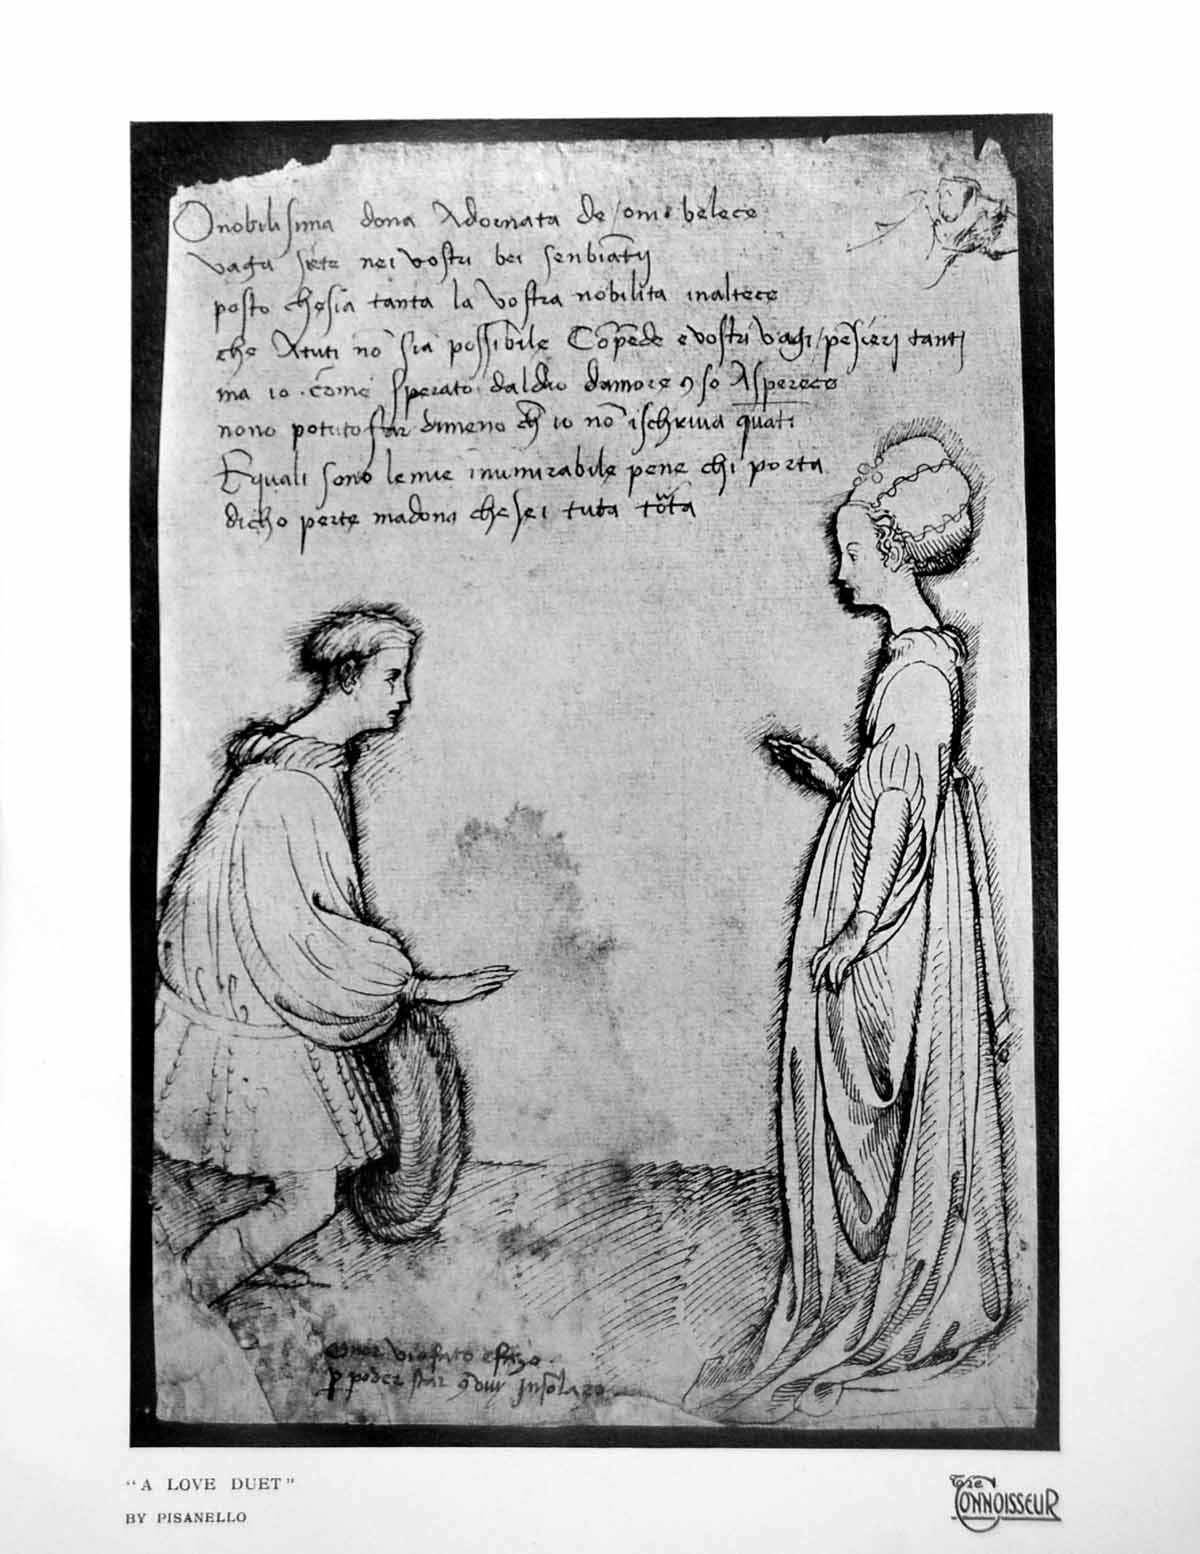 O nobilisima dona Adornata de / omi belece
vagu siete nei vostri bei senbiatij
posto chesia tanta la vostra nobilita inaltece
che Atuti no sia possibile Coprede e vostri vagi / pesierj tantj
ma io come sperato daldio damore so Asperece
nono potuto star dimeno ch io no ischriva quati
E quali sono lemie inumirabile pene chi porta
dicho perte madona chesei tuta
poder star
"A LOVE DUET"
BY PISANELLO
The CONNOISSEUR